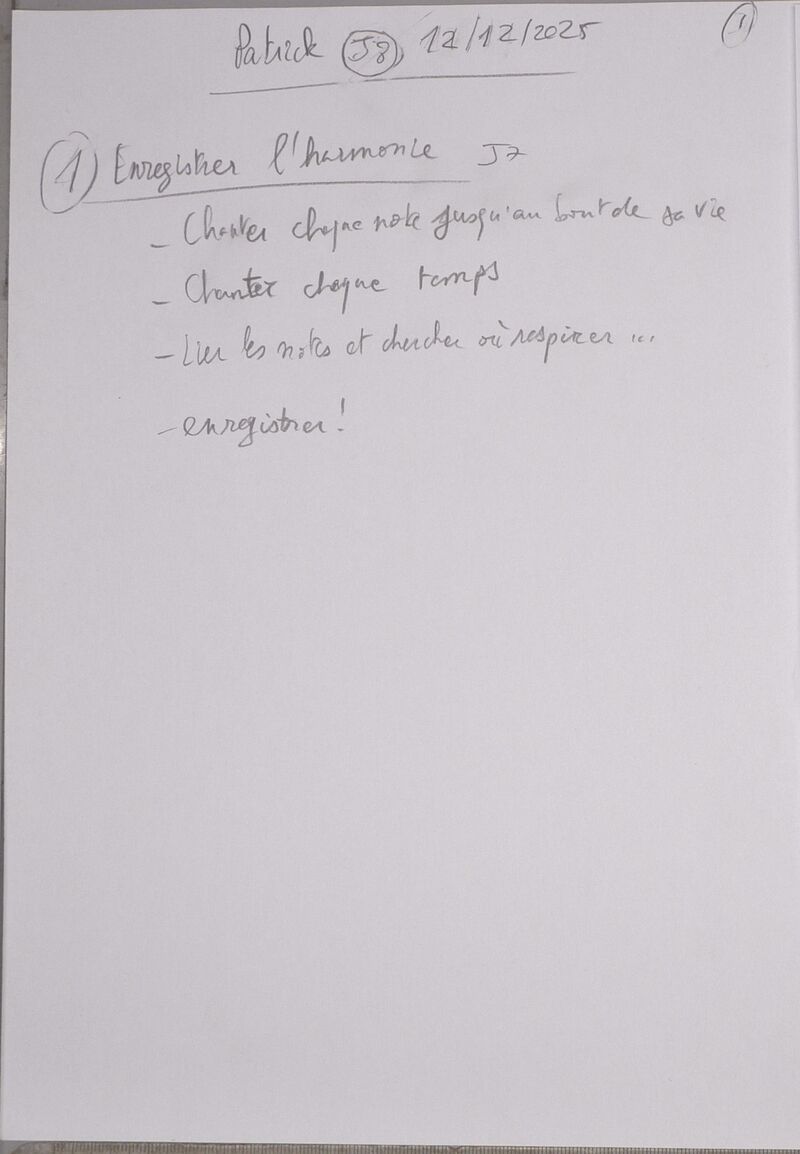 Patrick J8, 12/12/2025
1
1) Enregistrer l'harmonie J7
- Chanter chaque note jusqu'au bout de sa vie
- Chanter chaque temps
- Lier les notes et chercher où respirer ...
- enregistrer !